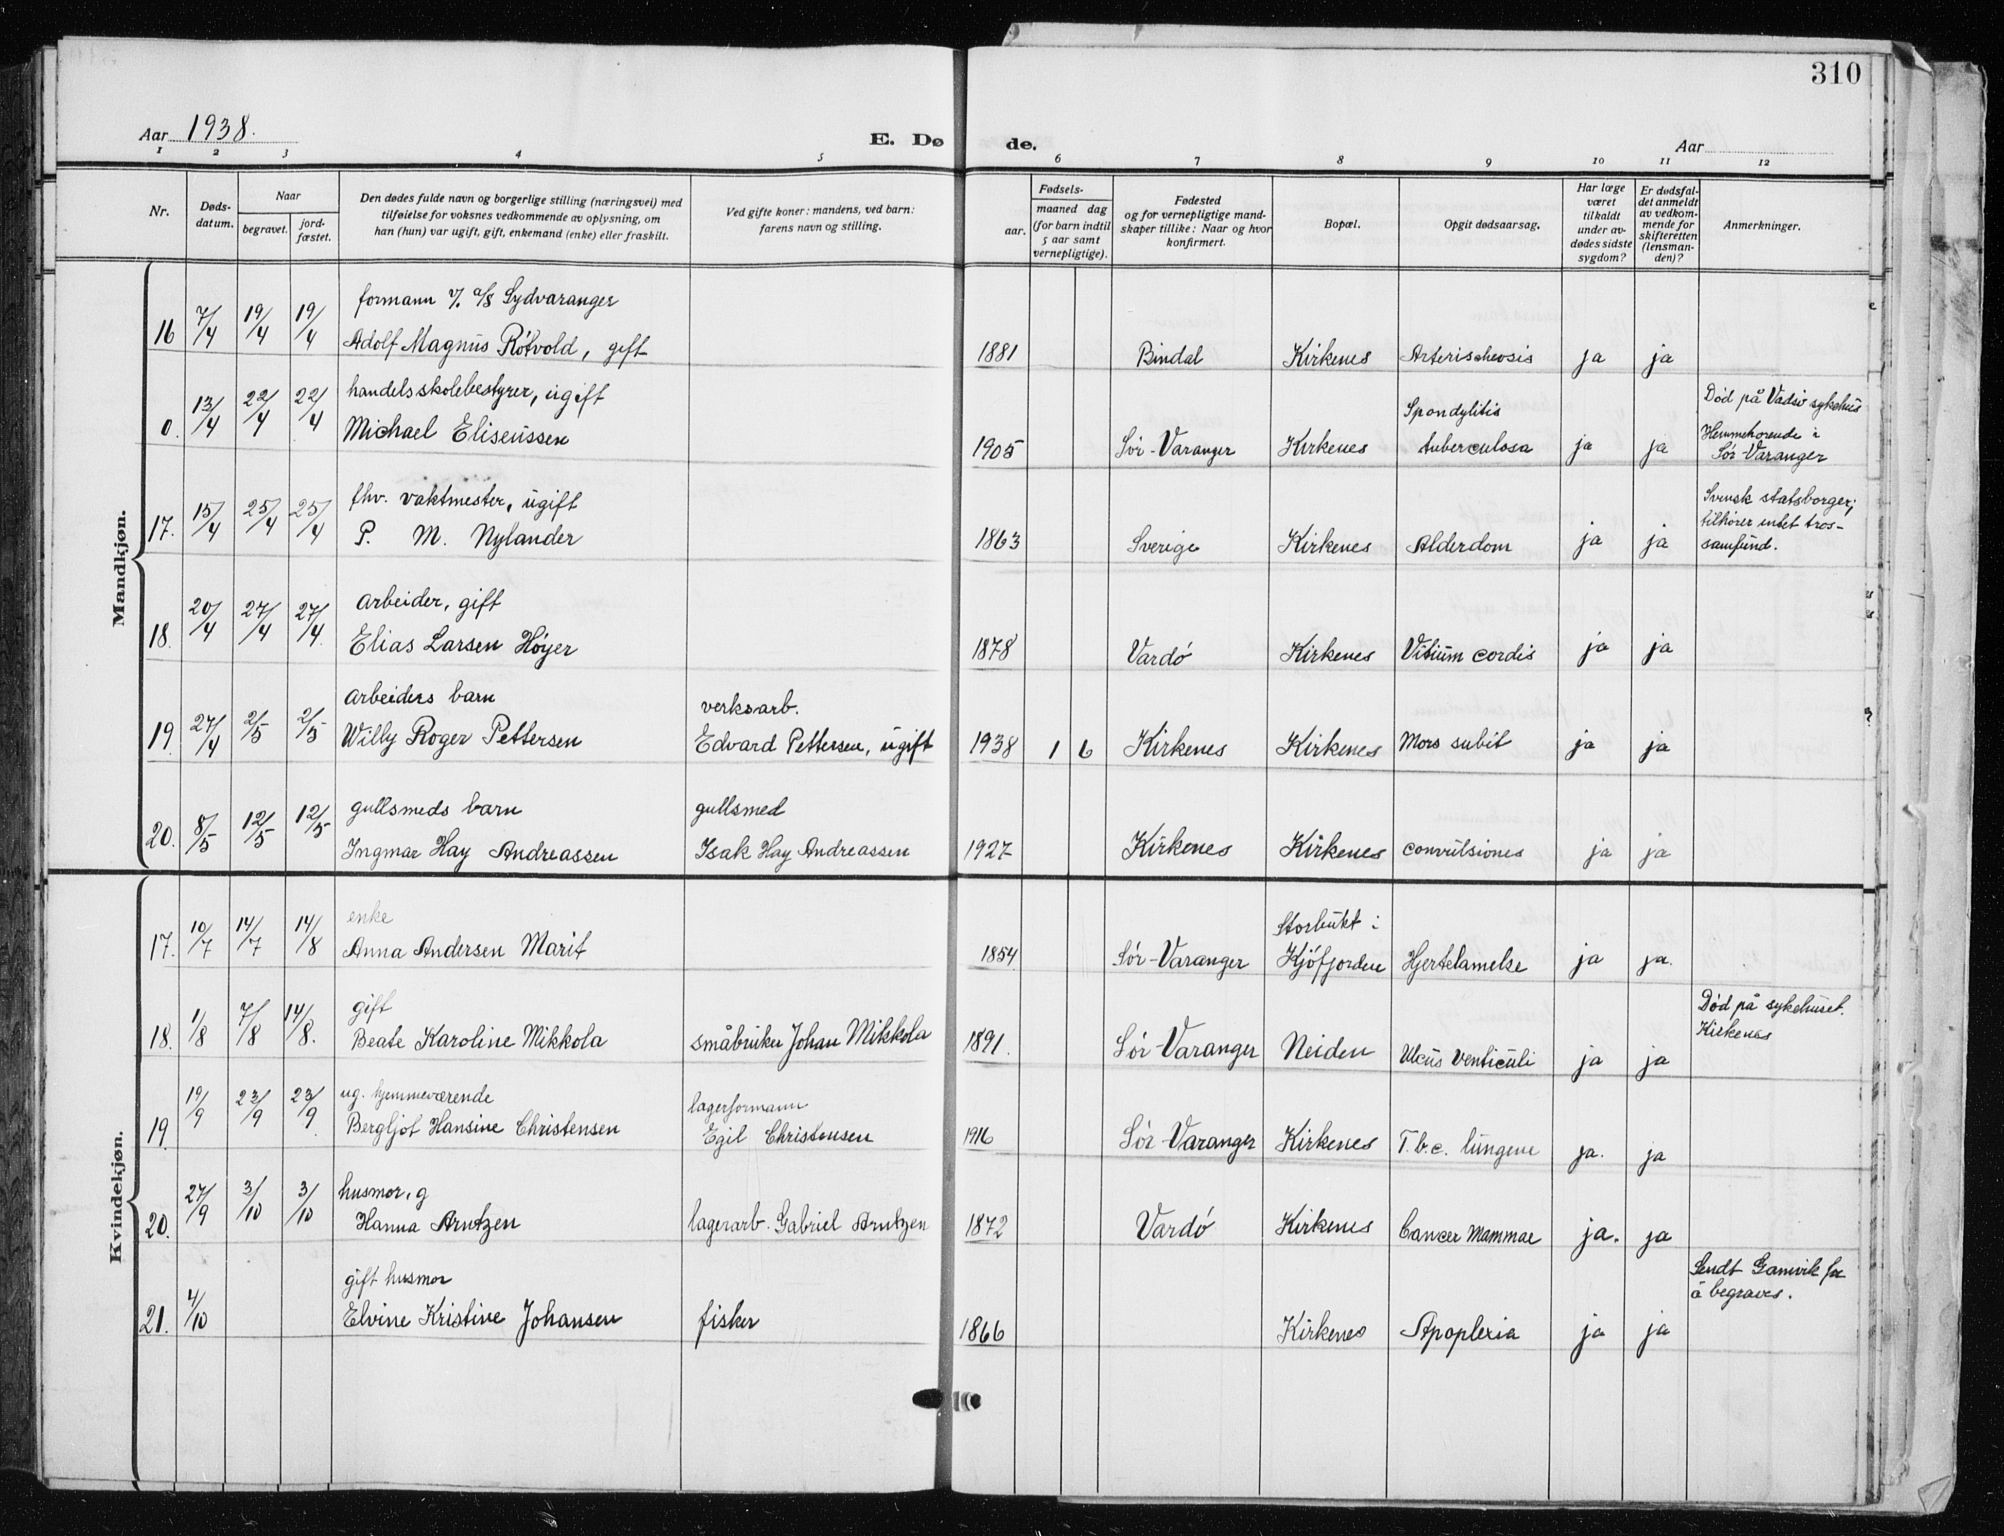 310
Aar 1938.
E. Dø de.
Aar
1 2 3 4 5 6 7 8 9 10 11 12
Nr.
Døds-
datum.
Naar
begravet.
jord-
fæstet.
Den dødes fulde navn og borgerlige stilling (næringsvei) med
tilføielse for voksnes vedkommende av oplysning, om
han (hun) var ugift, gift, enkemand (enke) eller fraskilt.
Ved gifte koner: mandens, ved barn:
farens navn og stilling.
Fødsels-
aar.
maaned dag
(for barn indtil
5 aar samt
vernepligtige).
Fødested
og for vernepligtige mand-
skaper tillike: Naar og hvor
konfirmert.
Bopæl.
Opgit dødsaarsag.
Har læge
været
tilkaldt
under av-
dødes sidste
sygdom?
Er dødsfal-
det anmeldt
av vedkom-
mende for
skifteretten
(lensman-
den)?
Anmerkninger.
Mandkjøn.
formann v. a/s Sydvaranger
16 7/4 19/4 19/4 Adolf Magnus Røtvold, gift 1881 Bindal Kirkenes ja ja
handelsskolebestyrer, ugift Spondylitis Død på Vadsø sykehus
0. 13/4 22/4 22/4 Michael Eliseussen 1905 Sør-Varanger Kirkenes tuberculosa ja ja Hemmehorende i
Sør-Varanger
fhv. vaktmester, ugift Svensk statsborger;
17. 15/4 25/4 25/4 P. M. Nylander 1863 Sverige Kirkenes Alderdom ja ja tilhører intet tros-
samfund.
arbeider, gift
18. 20/4 27/4 27/4 Elias Larsen Høyer 1878 Vardø Kirkenes Vitium cordis ja ja
arbeiders barn verksarb.
19. 27/4 2/5 2/5 Willy Roger Pettersen Edvard Pettersen, ugift 1938 1 6 Kirkenes Kirkenes Mors subit ja ja
gullsmeds barn gullsmed
20. 8/5 12/5 12/5 Ingmar Hay Andreassen Isak Hay Andreassen 1927 Kirkenes Kirkenes convulsiones ja ja
Kvindekjøn.
enke Storbukt i
17. 10/7 14/7 14/8 Anna Andersen Marit 1854 Sør-Varanger Kjøfjorden Hjertelamelse ja ja.
gift Død på sykehuset.
18. 1/8 7/8 14/8. Beate Karoline Mikkola småbruker Johan Mikkola 1891. Sør-Varanger Neiden Ulcus ventriculi ja ja Kirkenes
ug. hjemmeværende lagerformann
19. 19/9 23/9 23/9 Bergljot Hansine Christensen Egil Christensen 1916 Sør-Varanger Kirkenes T.b.c. lungene ja. ja
husmor, g
20. 27/9 3/10 3/10 Hanna Arntzen lagerarb. Gabriel Arntzen 1872 Vardø Kirkenes Cancer mammae ja. ja
gift husmor Sendt Gamvik for
å begraves.
21. 4/10 Elvine Kristine Johansen fisker 1866 Kirkenes Apoplexia ja ja